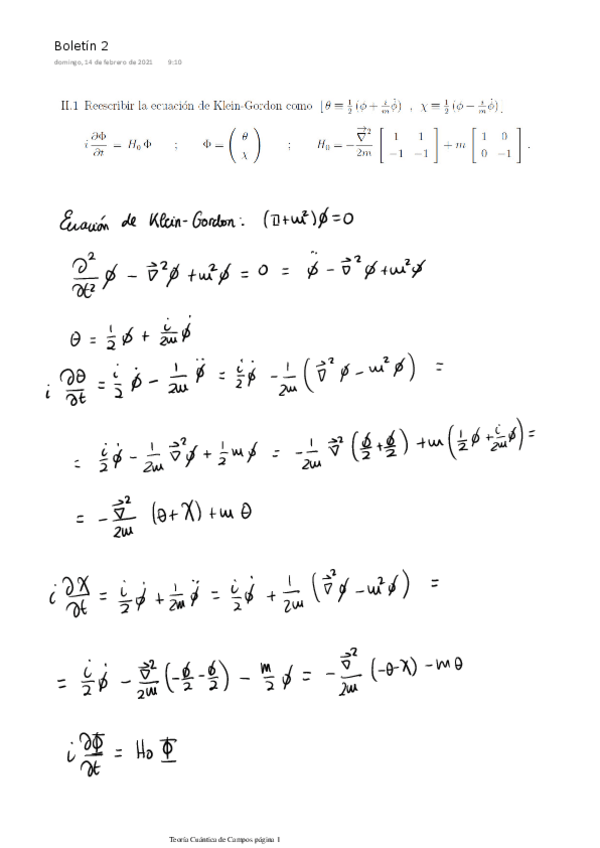 Boletín 2
domingo, 14 de febrero de 2021 9:10
II.1 Reescribir la ecuación de Klein-Gordon como [θ ≡ ½(φ + i/m φ̇) , χ ≡ ½(φ − i/m φ̇)].
i ∂Φ/∂t = H₀ Φ ; Φ = ( θ χ ) ; H₀ = − ∇⃗²/2m [ 1 1 −1 −1 ] + m [ 1 0 0 −1 ] .
Ecuación de Klein-Gordon: (□+m²)φ=0
∂²/∂t² φ − ∇⃗²φ + m²φ = 0 = φ̈ − ∇⃗²φ + m²φ
θ = 1/2 φ + i/2m φ̇
i ∂θ/∂t = i/2 φ̇ − 1/2m φ̈ = i/2 φ̇ − 1/2m (∇⃗²φ − m²φ) =
= i/2 φ̇ − 1/2m ∇⃗²φ + 1/2 mφ = − 1/2m ∇⃗² (φ/2 + φ/2) + m (1/2 φ + i/2m φ̇) =
= − ∇⃗²/2m (θ+χ) + m θ
i ∂χ/∂t = i/2 φ̇ + 1/2m φ̈ = i/2 φ̇ + 1/2m (∇⃗²φ − m²φ) =
= i/2 φ̇ − ∇⃗²/2m (−φ/2 − φ/2) − m/2 φ = − ∇⃗²/2m (−θ−χ) − mθ
i ∂Φ/∂t = H₀ Φ
Teoría Cuántica de Campos página 1